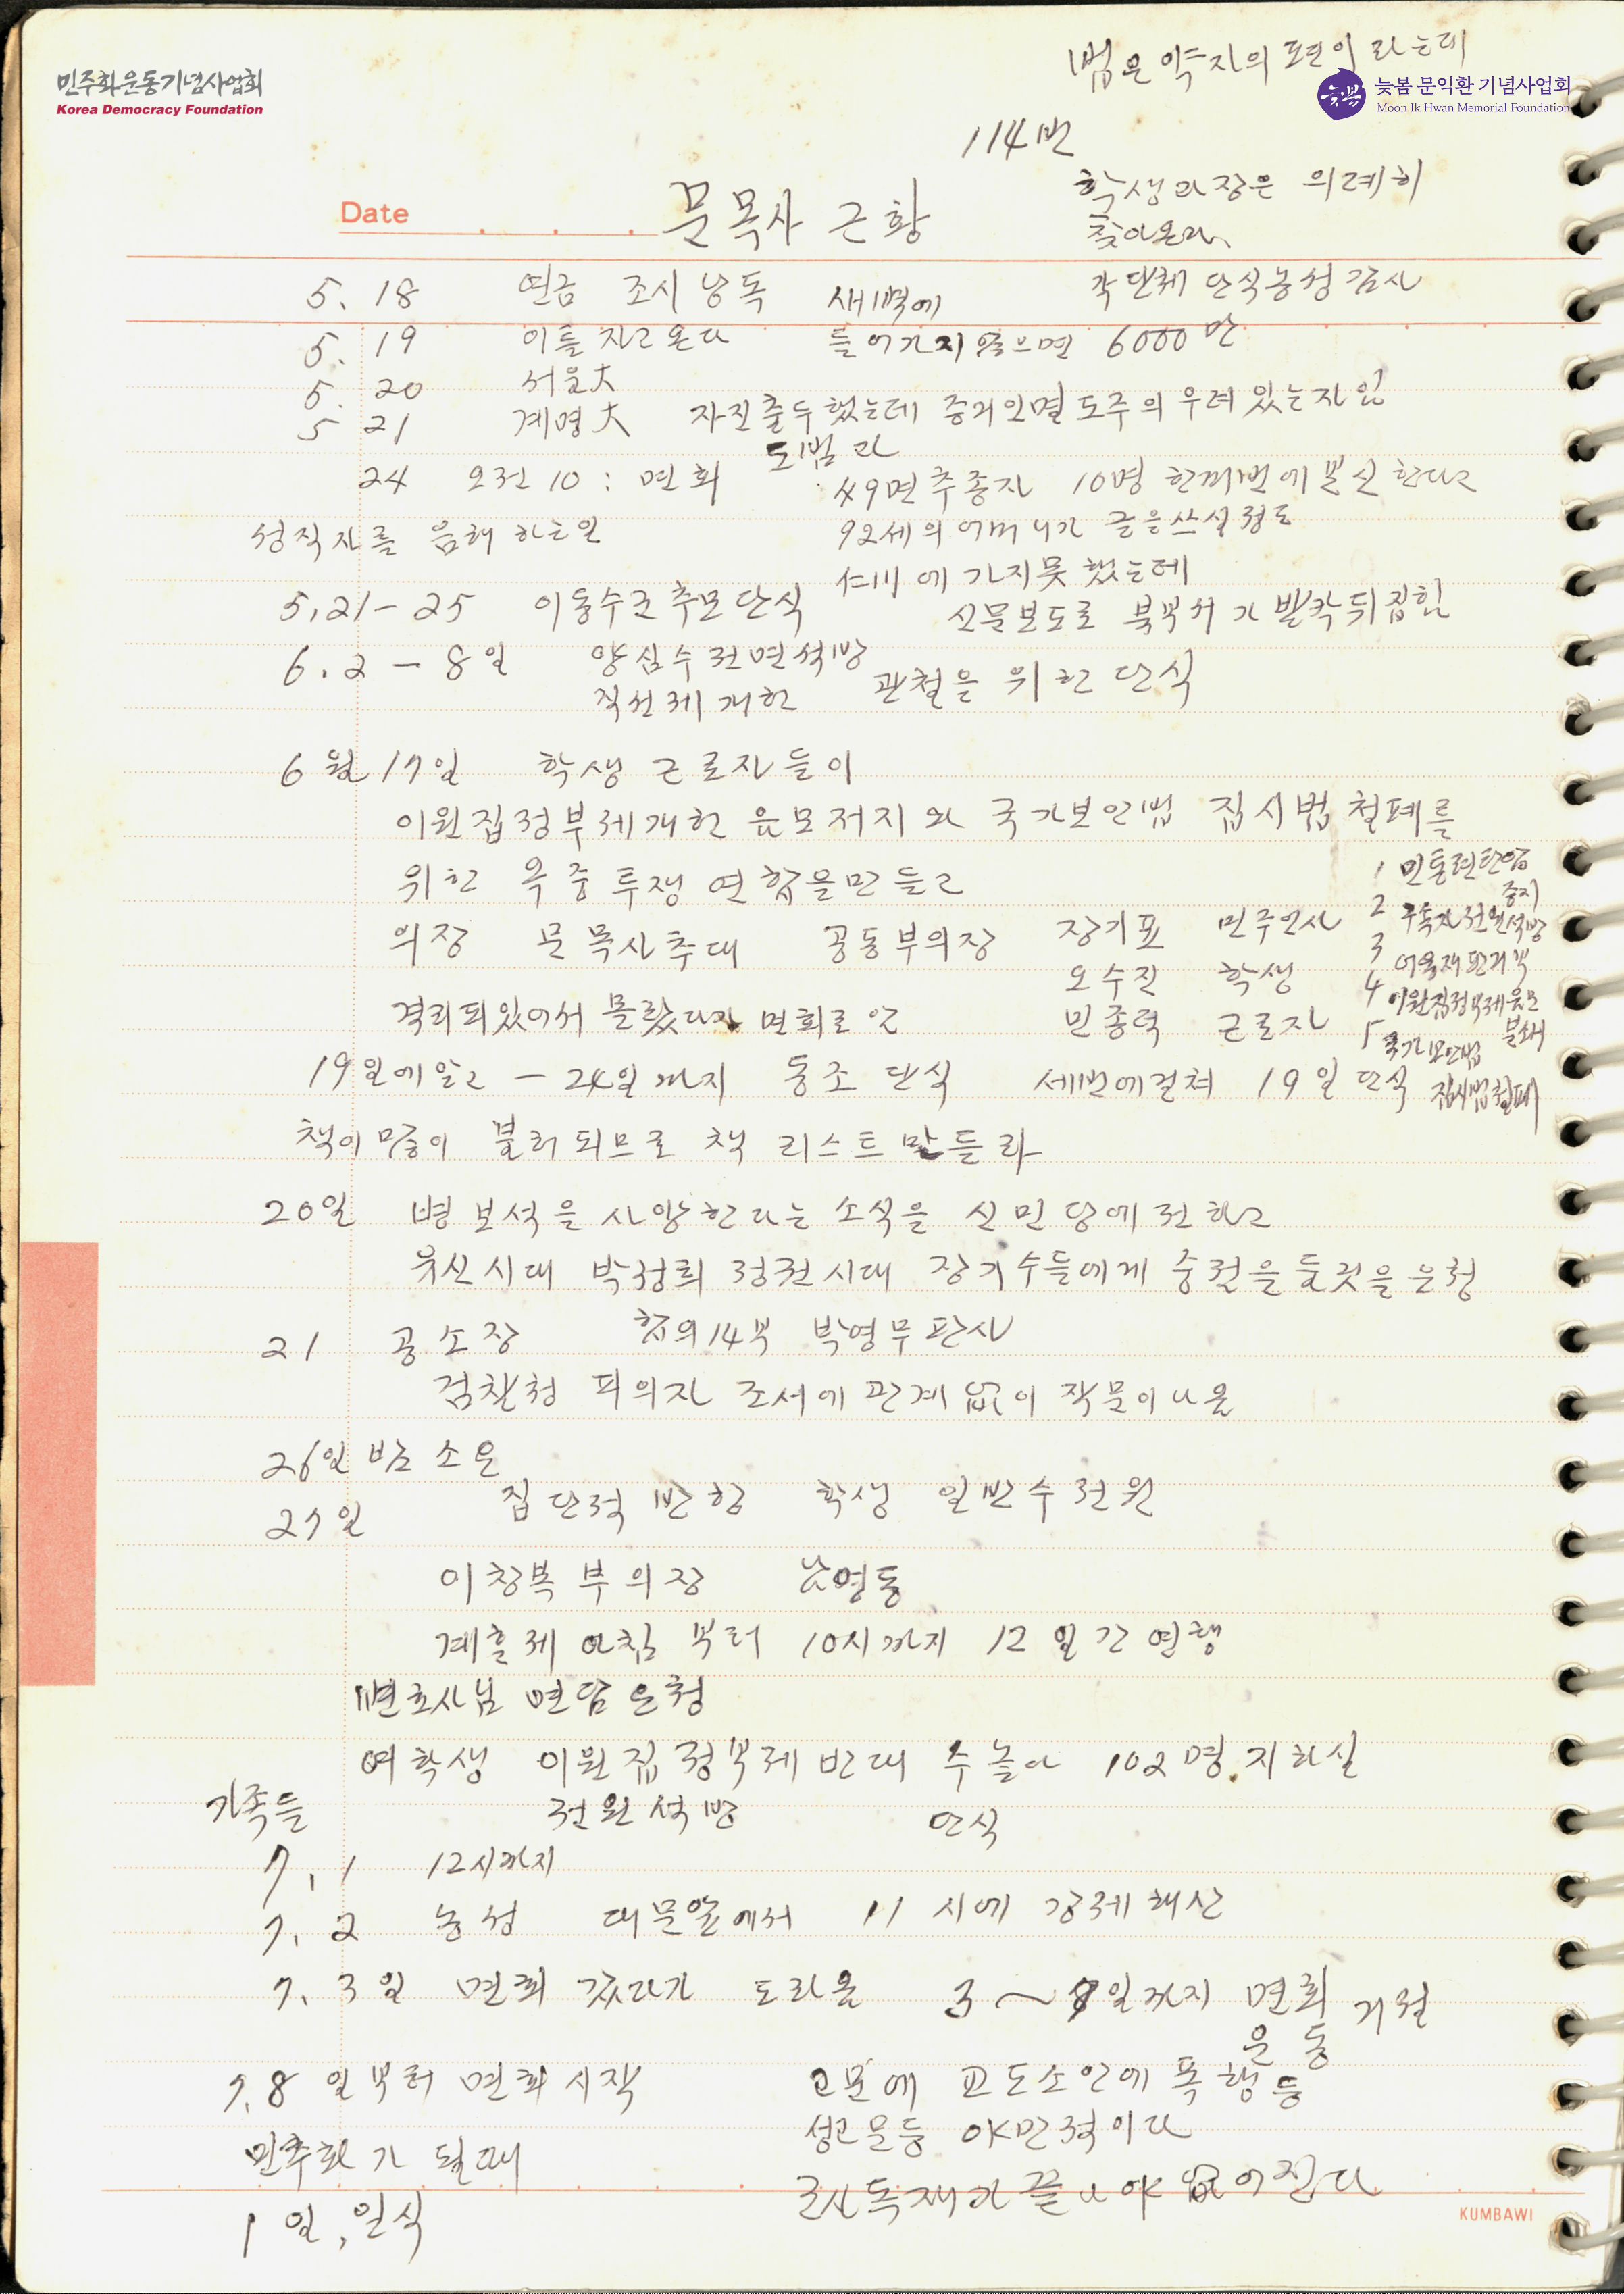 민주화운동기념사업회
Korea Democracy Foundation
늦봄 문익환 기념사업회
Moon Ik Hwan Memorial Foundation
법은 약자의 편이라는데
114번
학생과장은 의례히
찾아온다
Date 문목사 근황
5. 18 연금 조시 낭독 새벽에 각 단체 단식농성 감사
5. 19 이틀 자고 온다 들어가지 않으면 6000만
5. 20 서울大
5 21 계명大 자진출두 했는데 증거인멸 도주의 우려 있는자임
24 오전 10: 면회 도범과 49면 추종자 10명 한꺼번에 분신한다고
성직자를 음해 하는일 92세의 어머니가 글을쓰실정도
仁川에 가지못했는데
5, 21 - 25 이동수군 추모단식 신문보도로 북부서가 발칵뒤집힘
6. 2 - 8일 양심수 전면석방
직선제 개헌 관철을 위한 단식
6월 17일 학생 근로자들이
이원집정부제개헌 음모저지와 국가보안법 집시법 철폐를
위한 옥중투쟁 연합을만들고
의장 문목사추대 공동부의장 장기표 민주인사
오수진 학생
격리되있어서 몰랐다가 면회로 안 민종덕 근로자
1 민통련탄압
중지
2 구속자 전원석방
3 어용재판거부
4 이원집정부제음모
분쇄
5 국가보안법
집시법철폐
19일에알고 - 24일까지 동조 단식 세번에걸쳐 19일 단식
책이 많이 불허되므로 책 리스트 만들라
20일 병보석을 사양한다는 소식을 신민당에 전하고
유신시대 박정희 정권시대 장기수들에게 중점을 둘것을 요청
21 공소장 합의14부 박영무 판사
검찰청 피의자 조서에 관계없이 작문이나옴
26일 밤 소요
27일 집단적 반항 학생 일반수 전원
이창복 부의장 남영동
계훈제 아침 부터 10시까지 12일간 연행
변호사님 면담 요청
여학생 이원집정부제 반대 수놓아 102명 지하실
가족들 전원석방 단식
7, 1 12시까지
7, 2 농성 대문앞에서 11시에 강제해산
7, 3일 면회 갔다가 도라옴 3~7일까지 면회 거절
운동
7, 8일부터 면회시작 고문에 교도소안에 폭행등
성고문등 야만적이다
민주화가 될때 군사독재가 끝나야 없어진다
1일, 일식
KUMBAWI